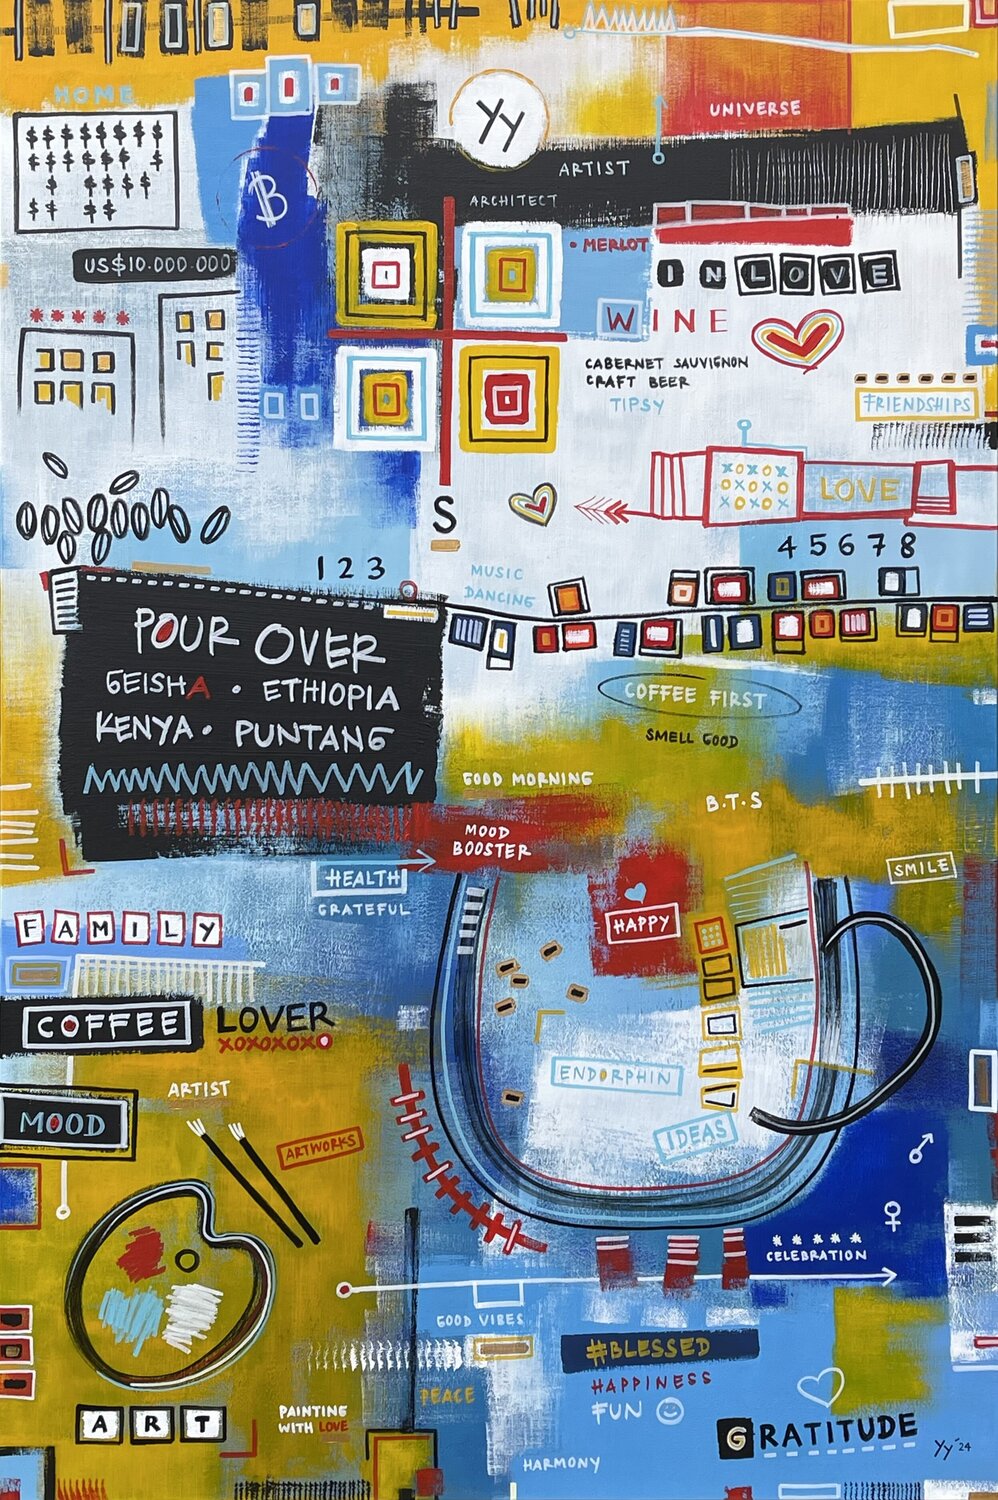 HOME
$ $ $ $ $ $ $ $
$ $ $ $ $ $ $ $
$ $ $ $ $
$ $ $ $
฿
US$10.000.000
Yy
UNIVERSE
ARTIST
ARCHITECT
• MERLOT
IN LOVE
WINE
CABERNET SAUVIGNON
CRAFT BEER
TIPSY
FRIENDSHIPS
XOXOX
OXOXO
XOXOX
LOVE
S
1 2 3
4 5 6 7 8
MUSIC
DANCING
POUR OVER
GEISHA • ETHIOPIA
KENYA • PUNTANG
COFFEE FIRST
SMELL GOOD
GOOD MORNING
B.T.S
MOOD
BOOSTER
HEALTH
GRATEFUL
SMILE
HAPPY
FAMILY
COFFEE LOVER
XOXOXOXO
ENDORPHIN
IDEAS
ARTIST
MOOD
ARTWORKS
♂
♀
CELEBRATION
GOOD VIBES
#BLESSED
HAPPINESS
FUN
PEACE
ART
PAINTING
WITH LOVE
GRATITUDE
HARMONY
Yy '24